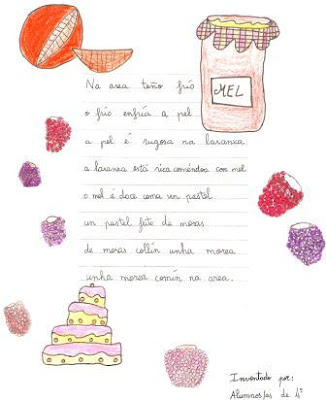 MEL
Na area teño frío
o frío enfría a pel
a pel é rugosa na laranxa
a laranxa está rica coméndoa con mel
o mel é doce coma un pastel
un pastel feito de moras
de moras collín unha morea
unha morea comín na area.
Inventado por:
Alumnos/as de 4º